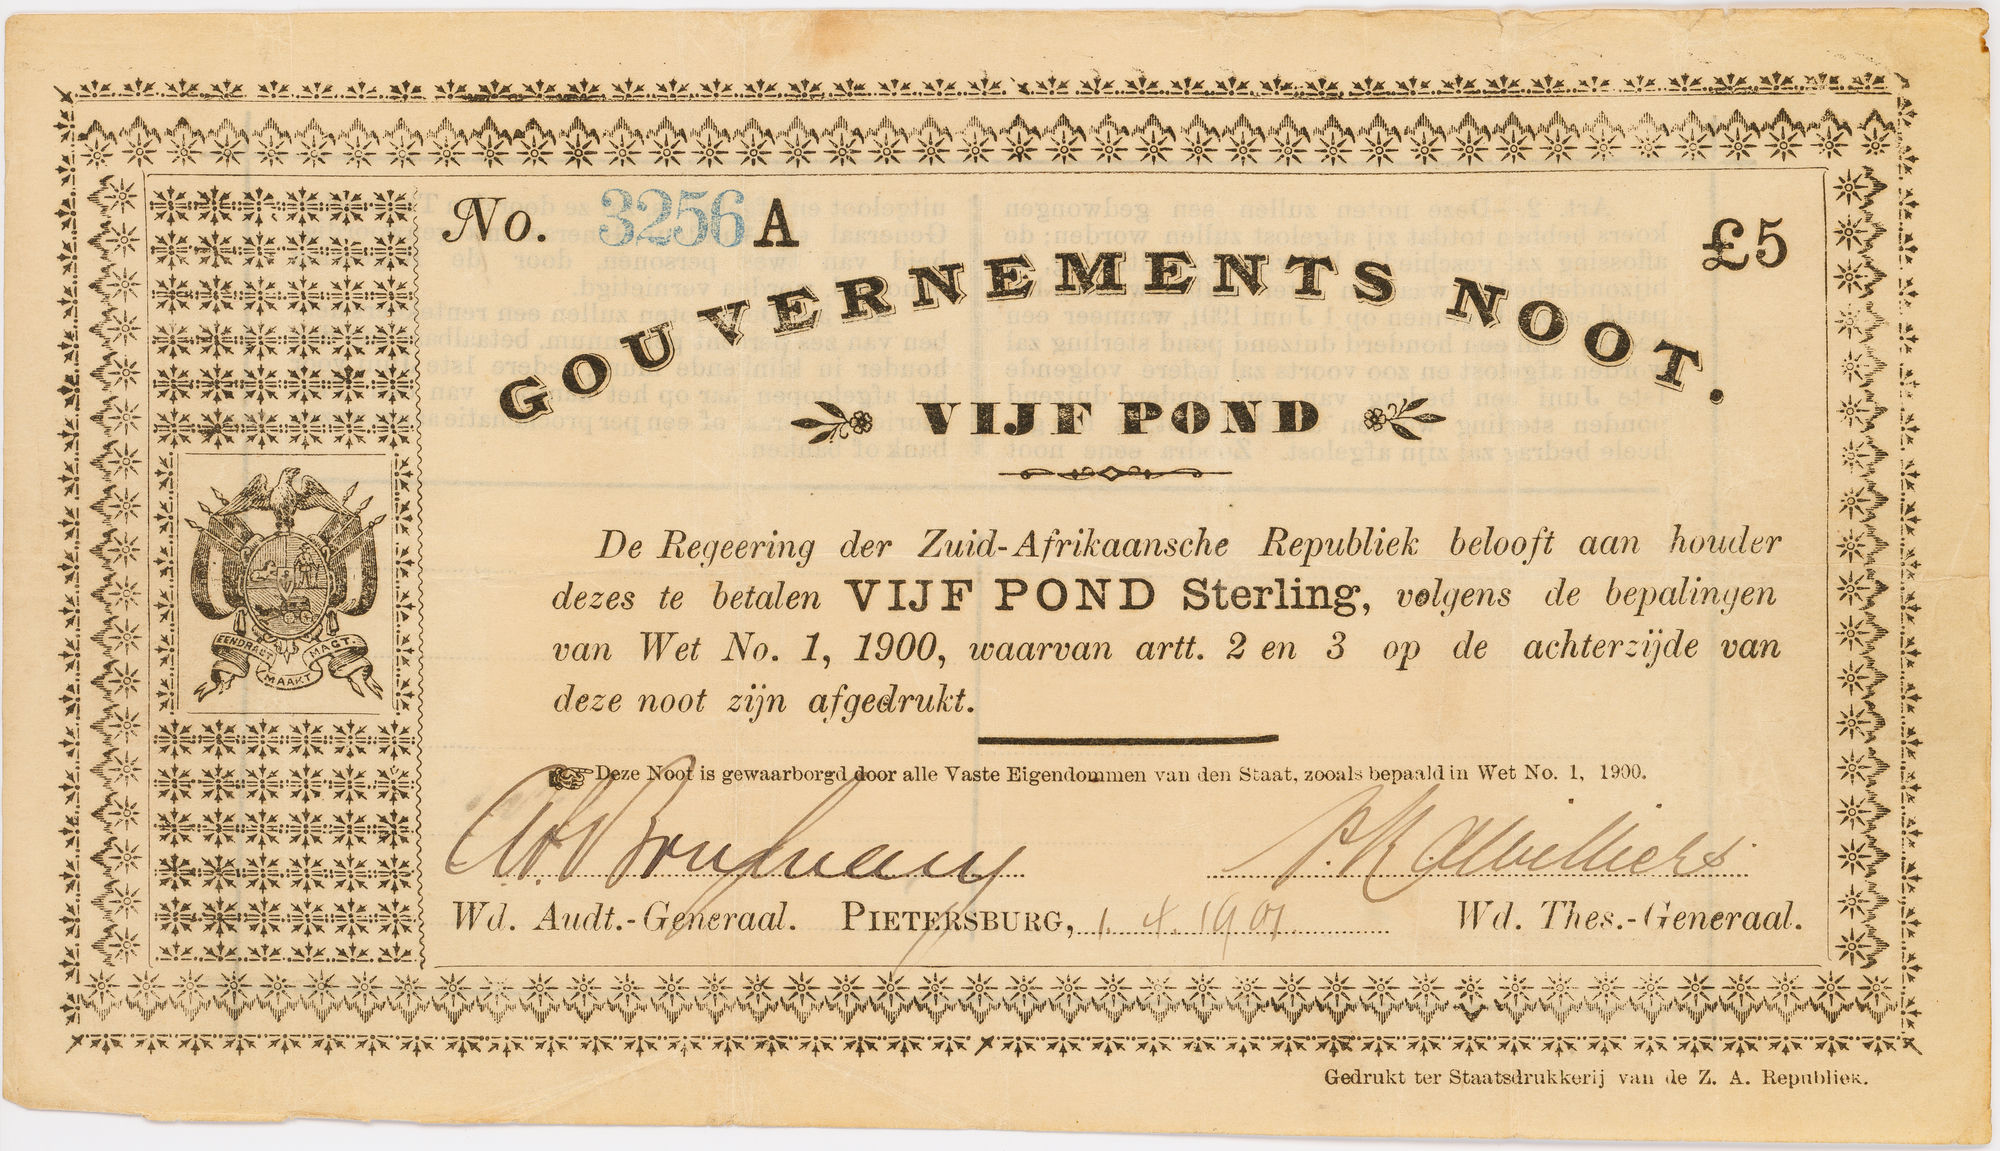 No. 3256 A
£5
GOUVERNEMENTS NOOT.
VIJF POND
De Regeering der Zuid-Afrikaansche Republiek belooft aan houder
dezes te betalen VIJF POND Sterling, volgens de bepalingen
van Wet No. 1, 1900, waarvan artt. 2 en 3 op de achterzijde van
deze noot zijn afgedrukt.
EENDRAGT MAAKT MAGT.
Deze Noot is gewaarborgd door alle Vaste Eigendommen van den Staat, zooals bepaald in Wet No. 1, 1900.
Wd. Audt.-Generaal. PIETERSBURG, 1. 4. 1901 Wd. Thes.-Generaal.
Gedrukt ter Staatsdrukkerij van de Z. A. Republiek.